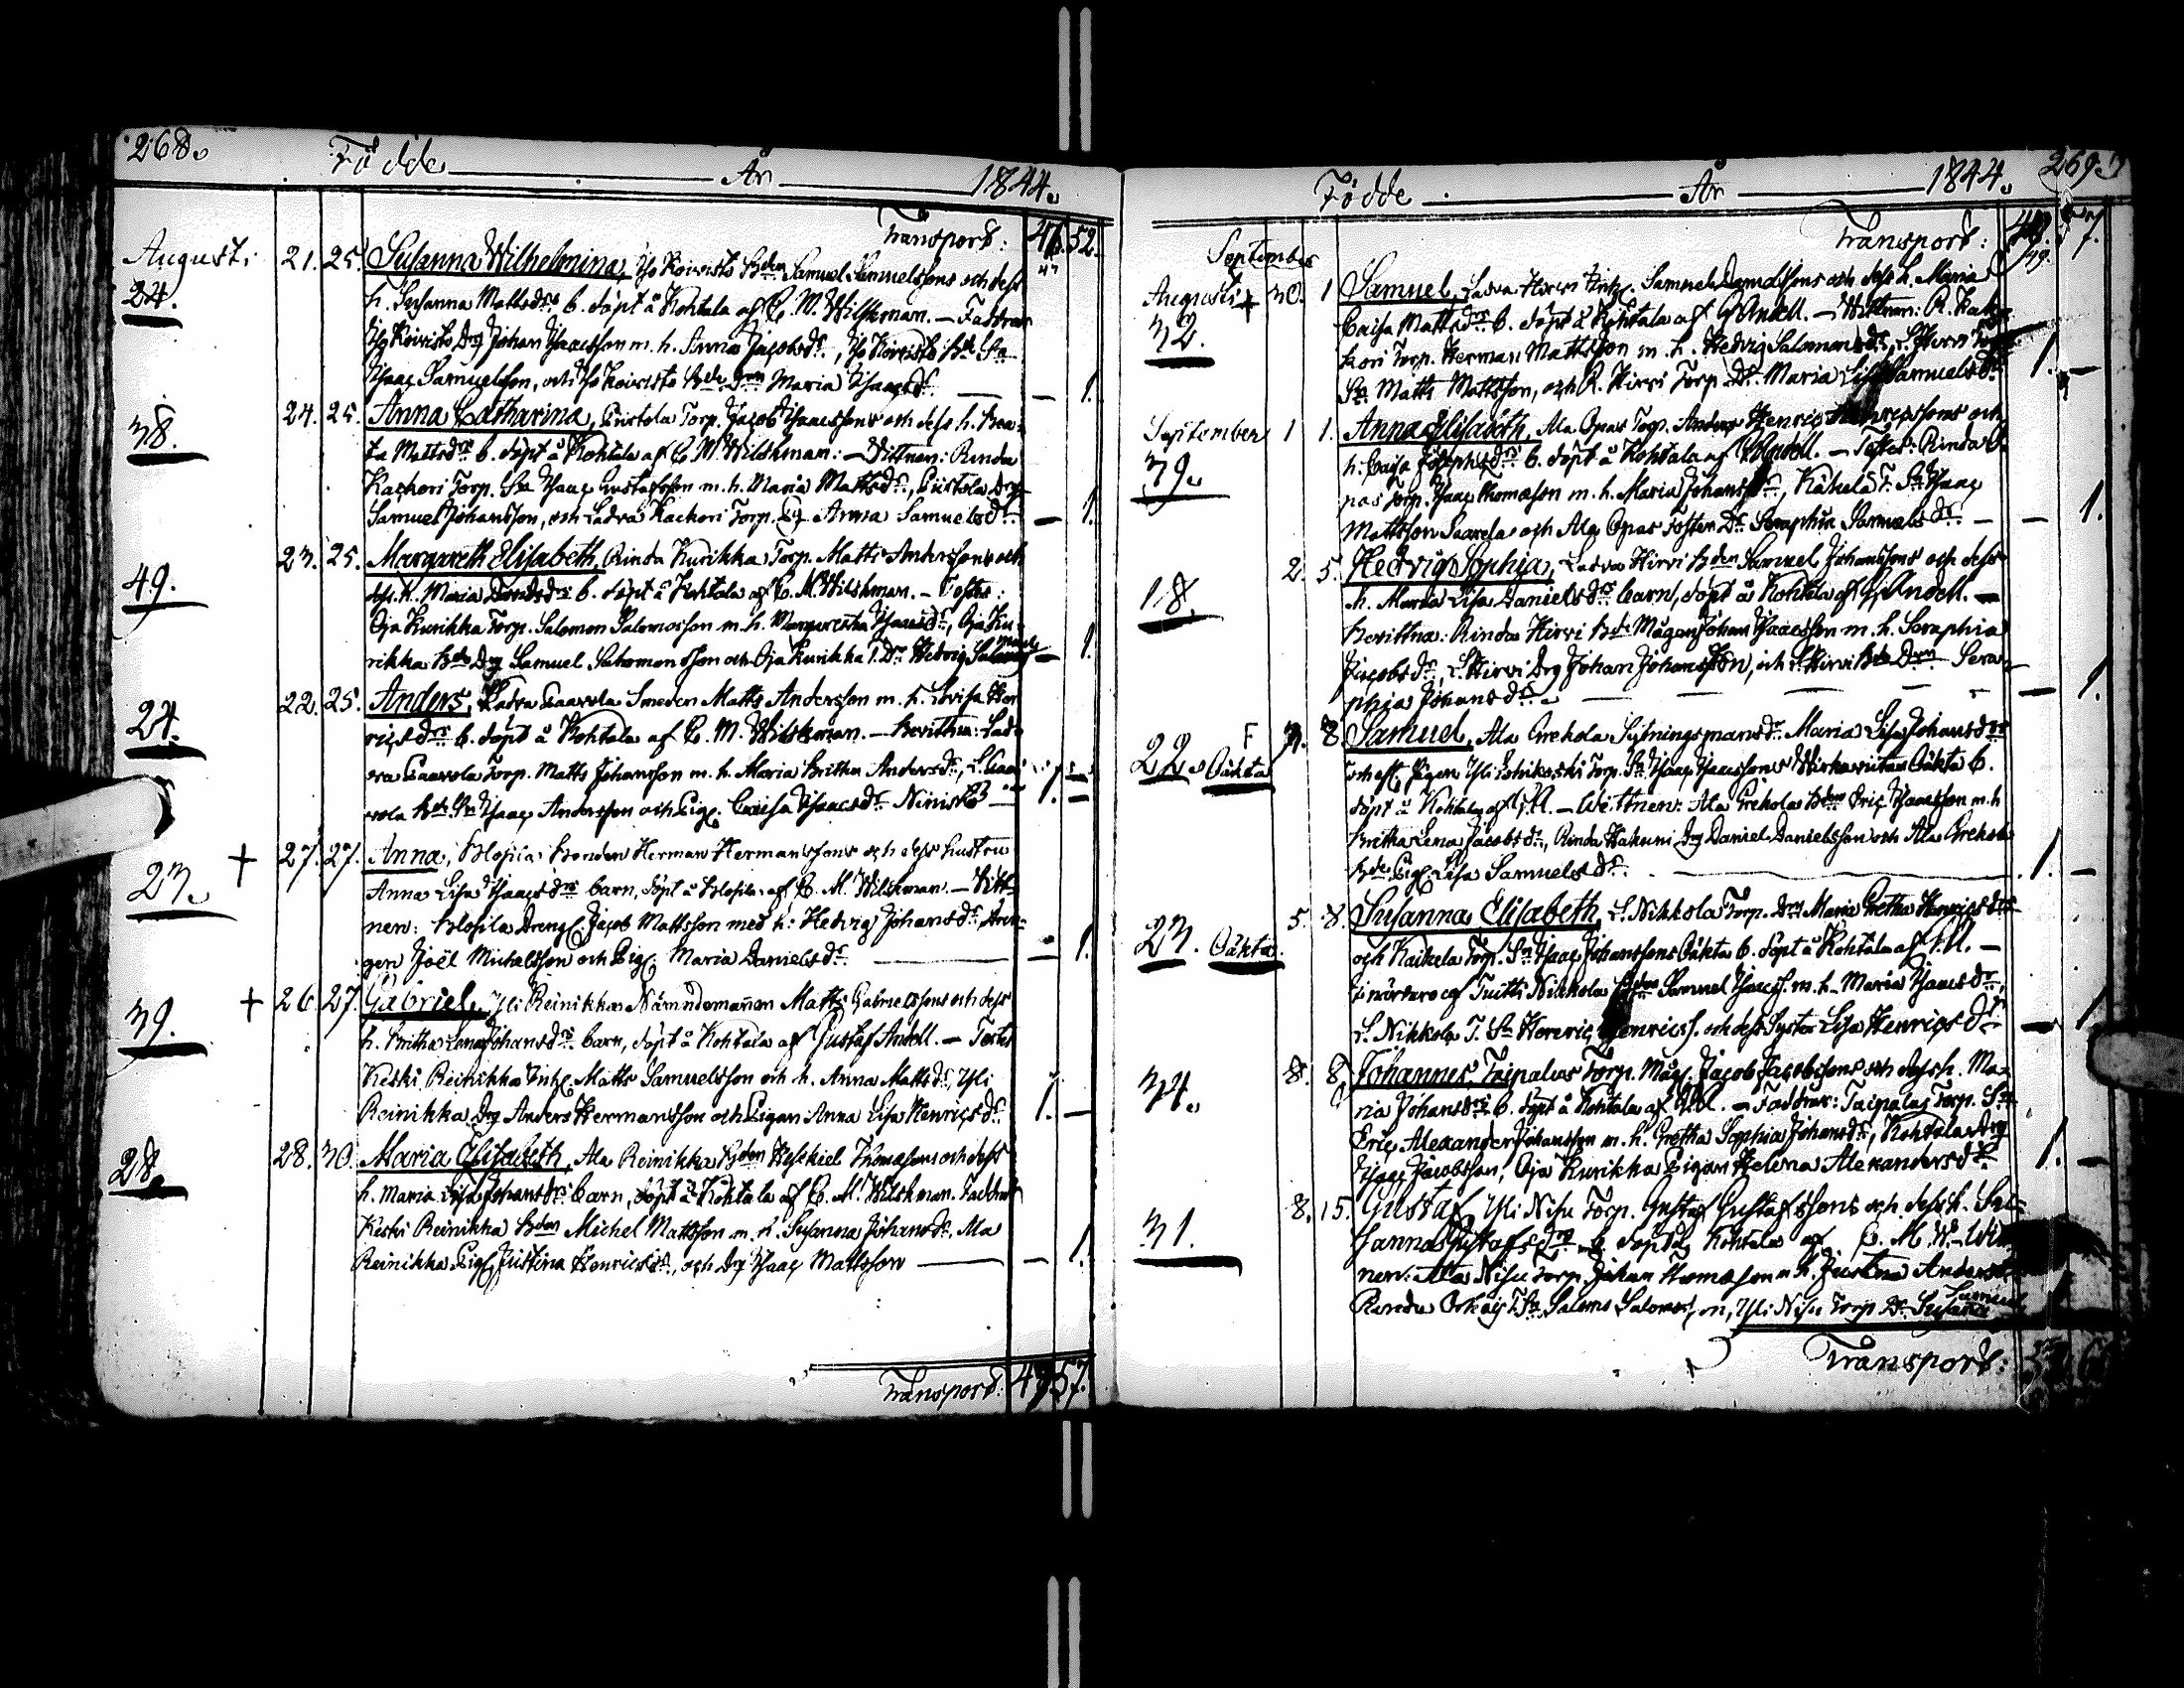 268.
Födde År 1844.
Transport: 46. 52.
Augusti 21. 25. Susanna Wilhelmina, Iso Koivisto Bden Samuel Samuelssons och dess
24. h. Susanna Mattsdrs b. döpt å Kohtala af C. M. Wilskman. – Faddrar
Iso Koivisto Drg Johan Isaacsson m. h. Anna Jacobsdr, Iso Koivisto Bde Sn
Isaac Samuelsson, och Iso Koivisto Bde Drn Maria Isaacsdr — 1.
38. 24. 25. Anna Catharina, Torp. Jacob Isaacssons och dess h. Brea-
ta Mattsdrs b. döpt å Kohtala af C. M. Wilskman: – Wittnen: Rinda
Kackori Torp. Sn Isaac Gustafsson m. h. Maria Mattsdr, Drg
Samuel Johansson, och Ladva Kackori Torp. Anna Samuelsdr — 1.
49. 23. 25. Margareth Elisabeth, Rinda Kurikka Torp. Matts Anderssons och
dess h. Maria b. döpt å Kohtala af C. M. Wilskman. – Testes:
Oja Kurikka Torp. Salomon Salomosson m. h. Margaretha Isaacsdr, Oja Ku-
rikka Bde Drg Samuel Salomonsson och Oja Kurikka T. Dr Hedvig — 1.
24. 22. 25. Anders, Ladva Smeden Matts Andersson m. h. Lovisa Hen
ricsdrs b. döpt å Kohtala af C. M. Wilskman. – Bevittna: Lad-
va Torp. Matts Johansson m. h. Maria Britha Andersdr, L.
Bde Sn Isaac Andersson och Pig. Caisa Isaacsdr Niinistö — 1. —
23. + 27. 27. Anna, Klopila Bonden Herman Hermanssons och dess hustru
Anna Lisa Isaacsdrs barn, döpt å Klopila af C. M. Wilskman. – Witt-
nen: Klopila Dreng. Jacob Mattsson med h: Hedvig Johansdr, Dren-
gen Joël Michelsson och Pig. Maria Danielsdr. — 1.
39. + 26. 27. Gabriel, Yli Reinikka Nämndemannen Matts Gabrielssons och dess
h. Britha Lena Johansdrs barn, döpt å Kohtala af Gustaf Andell. – Testes
Keski Reinikka Inh. Matts Samuelsson och h. Anna Mattsdr, Yli
Reinikka Drg Anders Hermansson och Pigan Anna Lisa Henricsdr 1. —
28. 28. 30. Maria Elisabeth, Ala Reinikka Bden Heskiel Thomassons och dess
h. Maria Lisa Johansdrs barn, döpt å Kohtala af C. M. Wilskman. Faddrar
Keski Reinikka Bden Michel Mattsson m. h. Susanna Johansdr, Ala
Reinikka Pig. Justina Henricsdr, och Drg Isaac Mattsson — 1.
Transport: 49 57.
269.
Födde År 1844.
Transport: 49. 57.
September
Augusti + 30. 1 Samuel, Ladva Hirvi Inh. Samuel Danielssons och dess h. Maria
32. Caisa Mattsdrs b. döpt å Kohtala af G. Andell. – Wittnen: R. Kac-
kori Torp. Herman Mattsson m. h. Hedvig Salomonsdr, L. Hirvi Torp.
Sn Matts Mattsson, och R. Hirvi Torp. Dr Maria Lisa Samuelsdr 1. —
September 1 1. Anna Elisabeth, Ala Opas Torp. Anders Henric Henricssons och
39. h: Caisa Josephsdrs b. döpt å Kohtala af G. Andell. – Testes: Rinda O-
pas Torp. Isaac Thomasson m. h. Maria Johansdr, T. Sn Isaac
Mattsson Saarela och Ala Opas Foster Dr Seraphia Samuelsdr — 1.
18. 2. 5. Hedvig Sophia, Ladva Hirvi Bden Samuel Johanssons och dess
h. Maria Lisa Danielsdrs barn, döpt å Kohtala af G. Andell. –
Bevittna: Rinda Hirvi Bde Mågen Johan Isaacsson m. h. Seraphia
Jacobsdr, L. Hirvi Drg Johan Johansson, och L. Hirvi Bde Drn Sera-
phia Johansdr. — 1.
22. Oäkta F 3. 8. Samuel, Ala Grekola Sytningsmansdr Maria Lisa Johansdrs
och Yli Torp. Sn Isaac Isaacssons Oäkta b.
döpt å Kohtala af G. A. – Wittnen: Ala Grekola Bden Eric Isaacsson m. h
Britha Lena Jacobsdr, Rinda Hakuni Drg Daniel Danielsson och Ala Grekola
Bde Pig. Lisa Samuelsdr. 1. —
23. Oäkta 5. 8. Susanna Elisabeth, L. Nikkola Torp. Drs Maria Gretha Henricsdrs
och Kaikela Torp. Sn Isaac Johanssons Oäkta b. döpt å Kohtala af G. A. –
Nikkola Bden Samuel Isaacs. m. h. Maria Isaacsdr,
L. Nikkola T. Sn Henric Henrics. och dess Syster Lisa Henricsdr — 1.
34. 8. 8. Johannes, Taipalus Torp. Måg. Jacob Jacobssons och dess h. Ma-
ria Johansdrs b. döpt å Kohtala af G. A. – Faddrar: Taipalus Torp. Sn
Eric Alexander Johansson m. h. Gretha Sophia Johansdr, Kohtala Drg
Isaac Jacobsson, Oja Kurikka Pigan Helena Alexandersdr 1. —
31. 8. 15. Gustaf, Yli Nisu Torp. Gustaf Gustafssons och dess h. Su-
sanna Gustafsdrs b. döpt å Kohtala af C. M. W. – Witt-
nen: Ala Nisu Torp. Johan Thomasson m. h. Justina Anders
T. Sn Salomo Salomos. on, Yli Nisu Torp Dr Susanna Samuel
Transport: